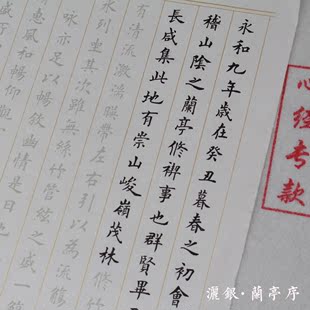 永和九年歲在癸丑暮春之初會
稽山陰之蘭亭脩禊事也群賢畢
長咸集此地有崇山峻嶺茂林
有清流激湍暎帶左右引以為流觴
列坐其次雖無絲竹管絃之盛一觴
詠亦足以暢敘幽情是日也
惠風和暢仰觀
心经专款
灑銀·蘭亭序